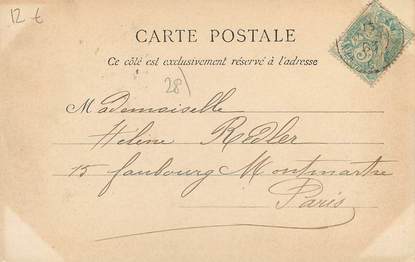 12 €
CARTE POSTALE
Ce côté est exclusivement réservé à l'adresse
28
Mademoiselle
Hélène Redler
15 faubourg Montmartre
Paris